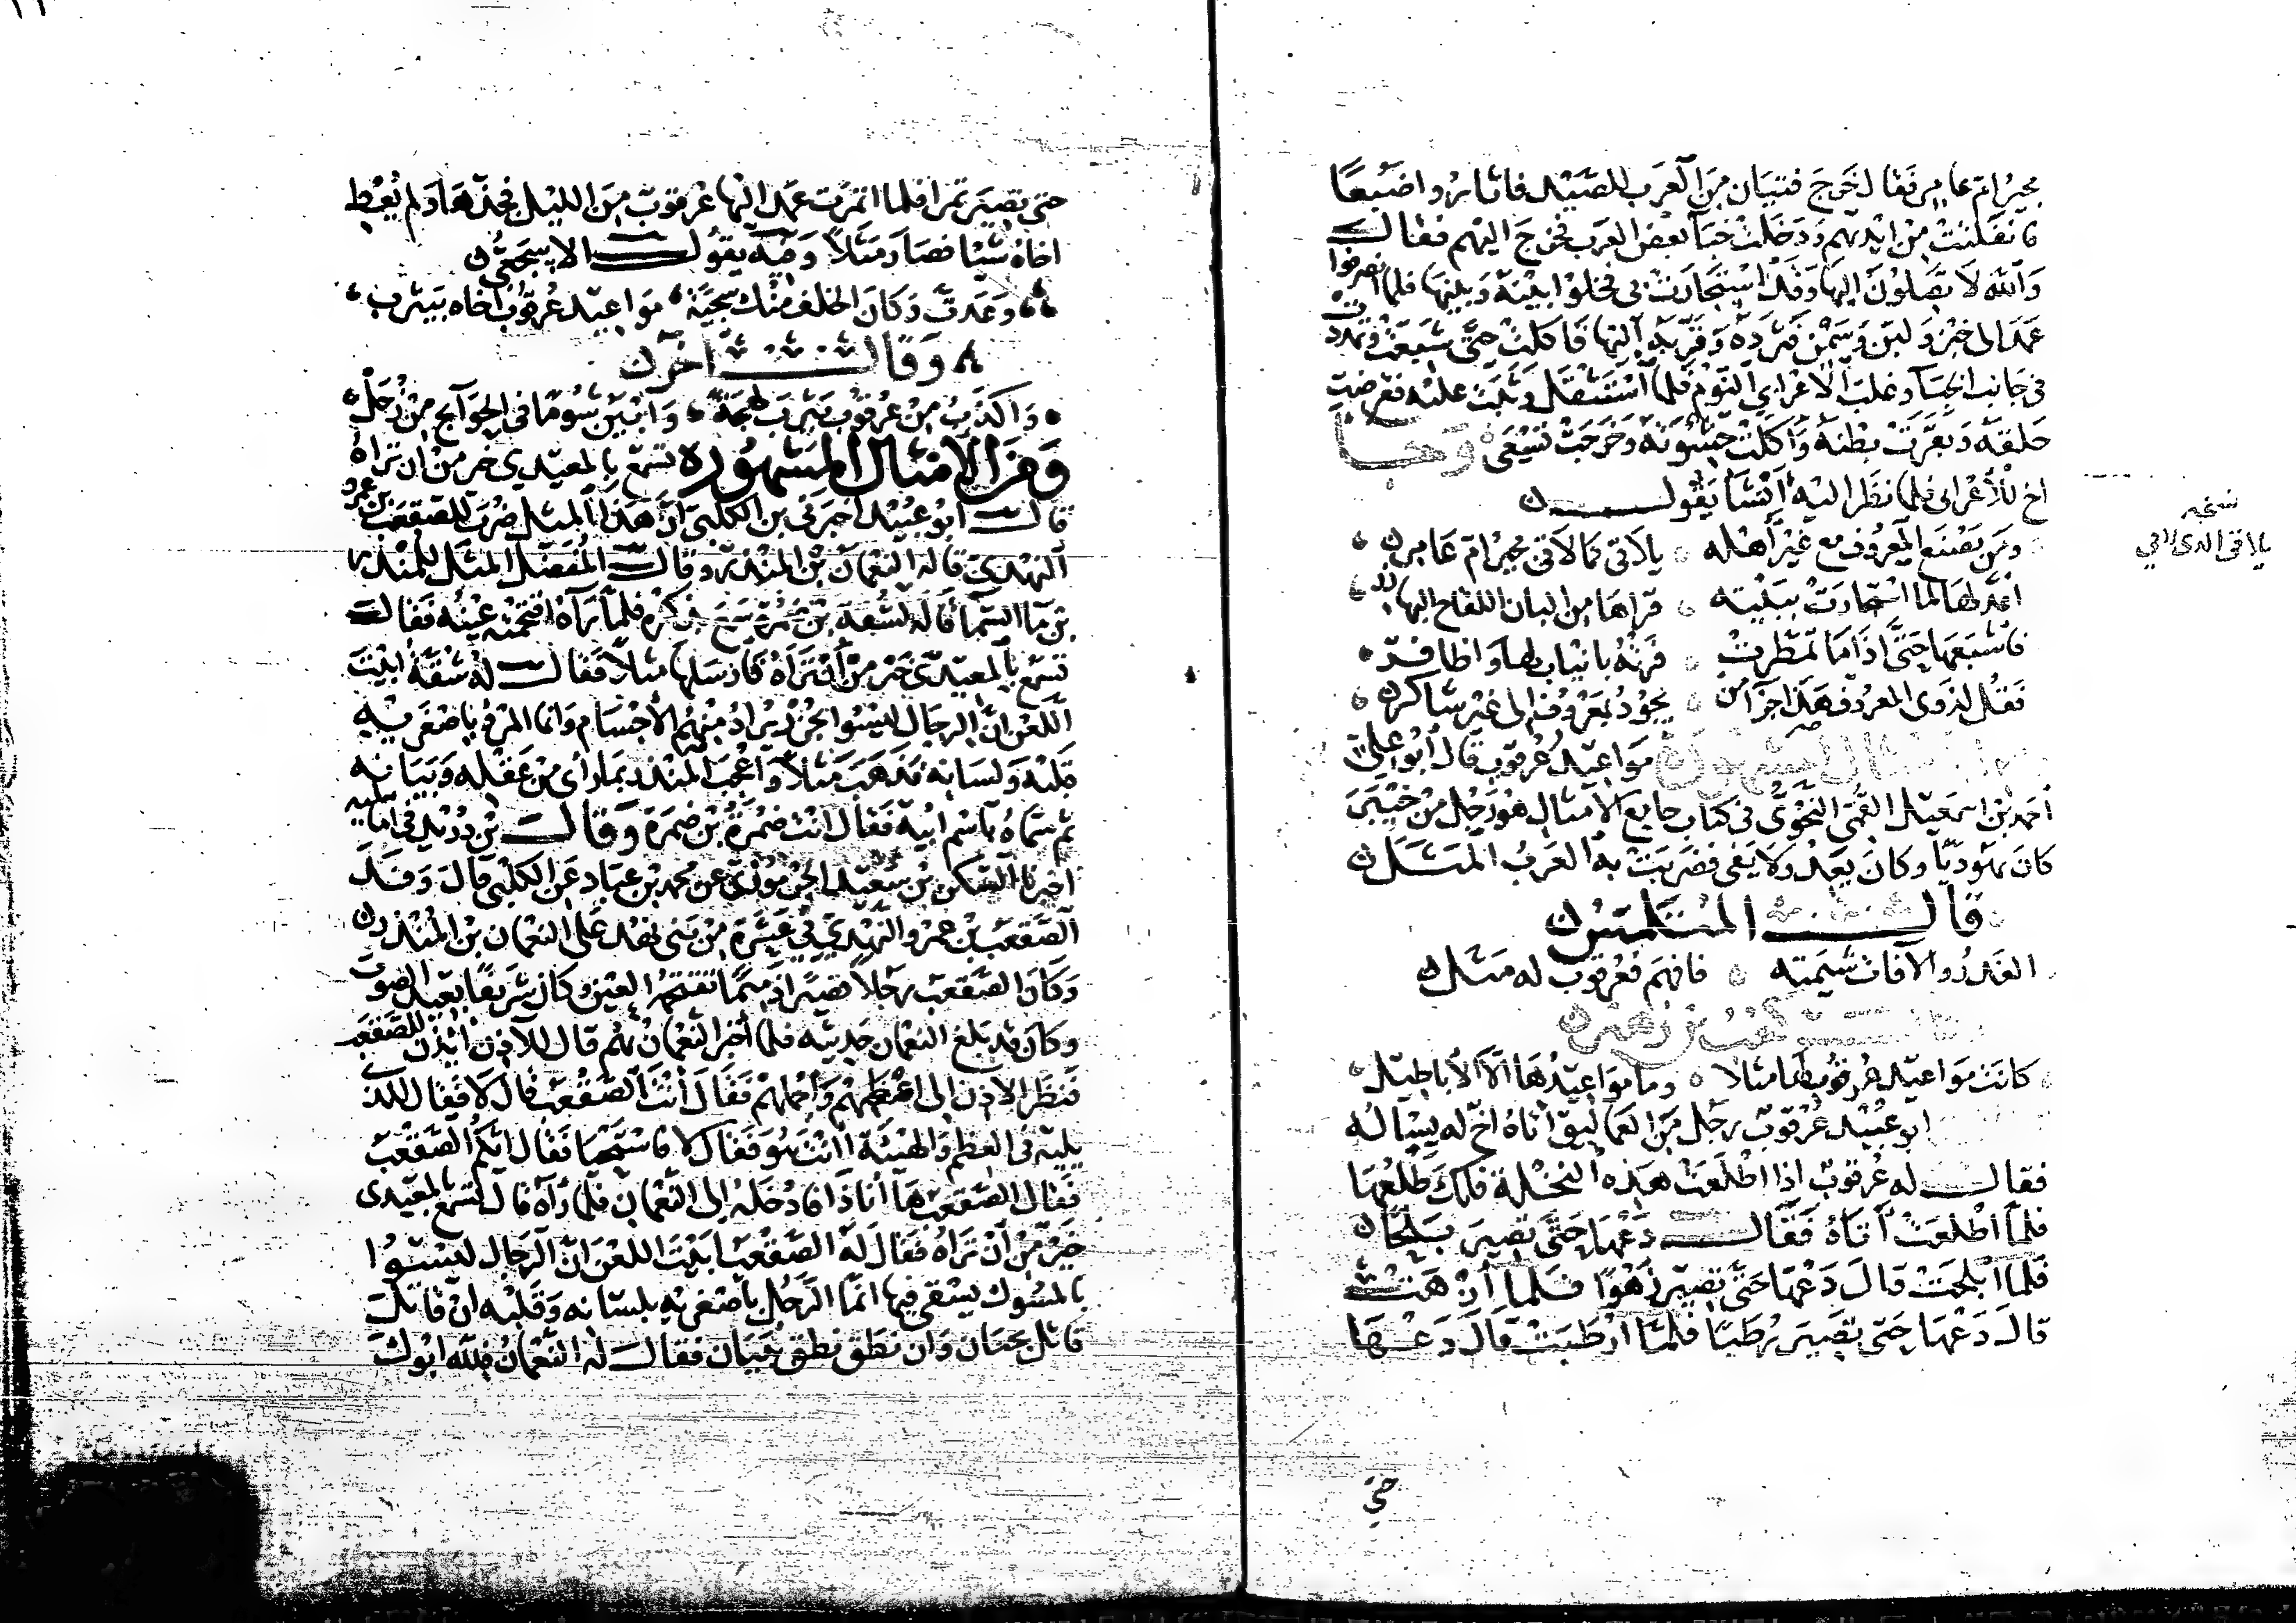 مجير ام عامر فقال خرج فتيان من العرب للصيد فاثاروا ضبعا
فانفلتت من ايديهم ودخلت خبآ بعض العرب فخرج اليهم فقالــ
والله لا تصلون اليها وقد استجارت بي فخلوا بينه وبينها فلما انصرفوا
عمد الى خبز ولبن وسمن فثرده وقربه اليها فاكلت حتى شبعت وتمددت
في جانب الخبآ وغلب الاعرابي النوم فلما استثقل وثبت عليه فقرضت
حلقه وبعرت بطنه واكلت حشوته وخرجت تسعى وجا
اخ للاعرابي فلما نظر اليه انشا يقولــ
ومن يصنع المعروف مع غير اهله يلاقى كما لاقى مجير ام عامر
نسخه
يلاقى الذى لاقى
اعد لها لما استجارت ببيته قراها من البان اللقاح البهازر
فاشبعها حتى اذا ما تمطرت فرته بانياب لها واظافر
فقل لذوى المعروف هذا جزآ من يجود بمعروف الى غير شاكر
مواعيد عرقوب قال ابو علي
احمد بن اسمعيل القمى النحوى في كتاب جامع الامثال هو رجل من خيبر
كان يهوديا وكان يعد ولا يفى فضربت به العرب المثل
قالــ المتلمس
الغدر والافات شيمته فافهم فعرقوب له مثل
كعب بن زهير
كانت مواعيد عرقوب لها مثلا وما مواعيدها الا الاباطيل
ابو عبيد عرقوب رجل من العماليق اتاه اخ له يساله
فقالــ له عرقوب اذا اطلعت هذه النخلة فلك طلعها
فلما اطلعت اتاه فقالــ دعها حتى تصير بلحا
فلما ابلحت قال دعها حتى تصير زهوا فلما ازهت
قال دعها حتى تصير رطبا فلما ارطبت قال دعها
حتى
حتى تصير تمرا فلما اتمرت عمد اليها عرقوب من الليل فجذها ولم يعط
اخاه شيا فصار مثلا وفيه يقولــ الاشجعى
وعدت وكان الخلف منك سجية مواعيد عرقوب اخاه بيترب
وقالــ آخر
واكذب من عرقوب يترب لهجة وابين شوما في الحوآيج من زحل
ومن الامثال المشهوره تسمع بالمعيدى خير من ان تراه
قالــ ابو عبيد اخبرنى بن الكلبى ان هذا المثل ضرب للصقعب بن عمرو
النهدى قاله النعمان بن المنذر وقالــ المفضل المثل للمنذر
بن مآ السمآ قاله لشقة بن ضمرة سمع بذكره فلما رآه اقتحمته عينه فقالــ
تسمع بالمعيدى خير من ان تراه فارسلها مثلا فقالــ له شقة ابيت
اللعن ان الرجال ليسوا بجزر يراد منهم الاجسام وانما المرء باصغريه
قلبه ولسانه فذهب مثلا واعجب المنذر بما راى من عقله وبيانه
ثم سماه باسم ابيه فقال انت ضمرة بن ضمرة وقالــ بن دريد في اماليه
اخبرنا السكن بن سعيد الجرموزى عن محمد بن عباد عن الكلبى قال وفد
الصقعب بن عمرو النهدى في عشرة من بنى نهد على النعمان بن المنذر
وكان الصقعب رجلا قصيرا ذميما تقتحمه العين وكان شريفا بعيد الصوت
وكان قد بلغ النعمان حديثه فلما اخبر النعمان بهم قال للآذن ايذن للصقعب
فنظر الاذن الى اعظمهم واجملهم فقال أنت الصقعب قال لا فقال للذى
يليه في العظم والهيئة أانت هو فقال لا فاستحيا فقال ايكم الصقعب
فقال الصقعب ها انا ذا فادخله الى النعمان فلما رآه قال تسمع بالمعيدى
خير من ان تراه فقال له الصقعب ابيت اللعن ان الرجال ليسوا
بالمسوك يستقى فيها انما الرجل باصغريه بلسانه وقلبه ان قاتل
قاتل بجنان وان نطق نطق ببيان فقالــ له النعمان فلله ابوك